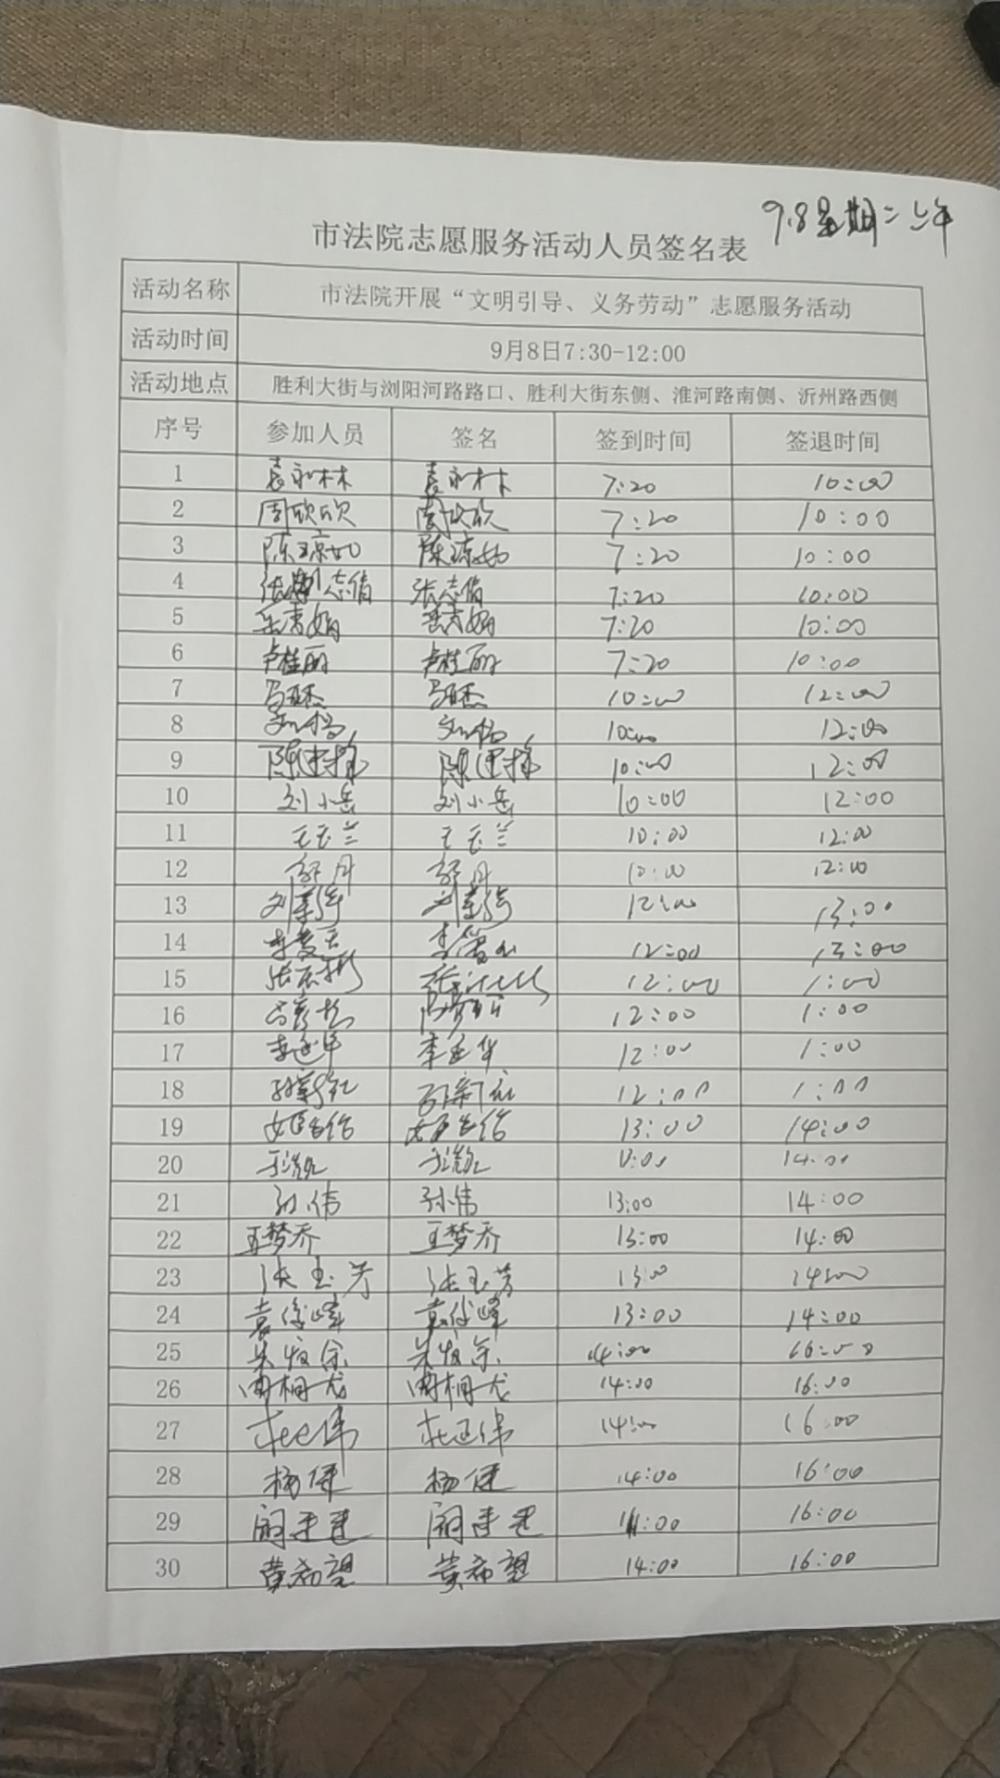 9.8星期二上午
市法院志愿服务活动人员签名表
活动名称 市法院开展“文明引导、义务劳动”志愿服务活动
活动时间 9月8日7:30-12:00
活动地点 胜利大街与浏阳河路路口、胜利大街东侧、淮河路南侧、沂州路西侧
序号 参加人员 签名 签到时间 签退时间
1 袁永林 袁永林 7:20 10:00
2 周欣欣 周欣欣 7:20 10:00
3 陈琼如 陈琼如 7:20 10:00
4 志信 张志信 7:20 10:00
5 7:20 10:00
6 卢桂丽 卢桂丽 7:20 10:00
7 马亚杰 马亚杰 10:00 12:00
8 刘杨 刘杨 10:00 12:00
9 陈建梅 陈建梅 10:00 12:00
10 刘小岳 刘小岳 10:00 12:00
11 王玉兰 王玉兰 10:00 12:00
12 10:00 12:00
13 12:00 13:00
14 12:00 13:00
15 12:00 1:00
16 12:00 1:00
17 李延华 李延华 12:00 1:00
18 12:00 1:00
19 13:00 14:00
20 14:00
21 孙伟 孙伟 13:00 14:00
22 王梦乔 王梦乔 13:00 14:00
23 张玉芳 张玉芳 13:00 14:00
24 袁俊峰 袁俊峰 13:00 14:00
25 14:00 16:00
26 14:00 16:00
27 14:00 16:00
28 杨健 杨健 14:00 16:00
29 16:00
30 黄希望 黄希望 14:00 16:00